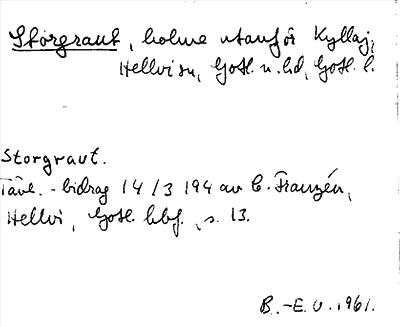 Storgraut, holme utanför Kyllaj,
Hellvi sn, Gotl. n. hd, Gotl. l.
Storgraut.
Tävl.-bidrag 14/3 194 av C. Franzén,
Hellvi, Gotl. hbf., s. 13.
B.-E. O. 1961.